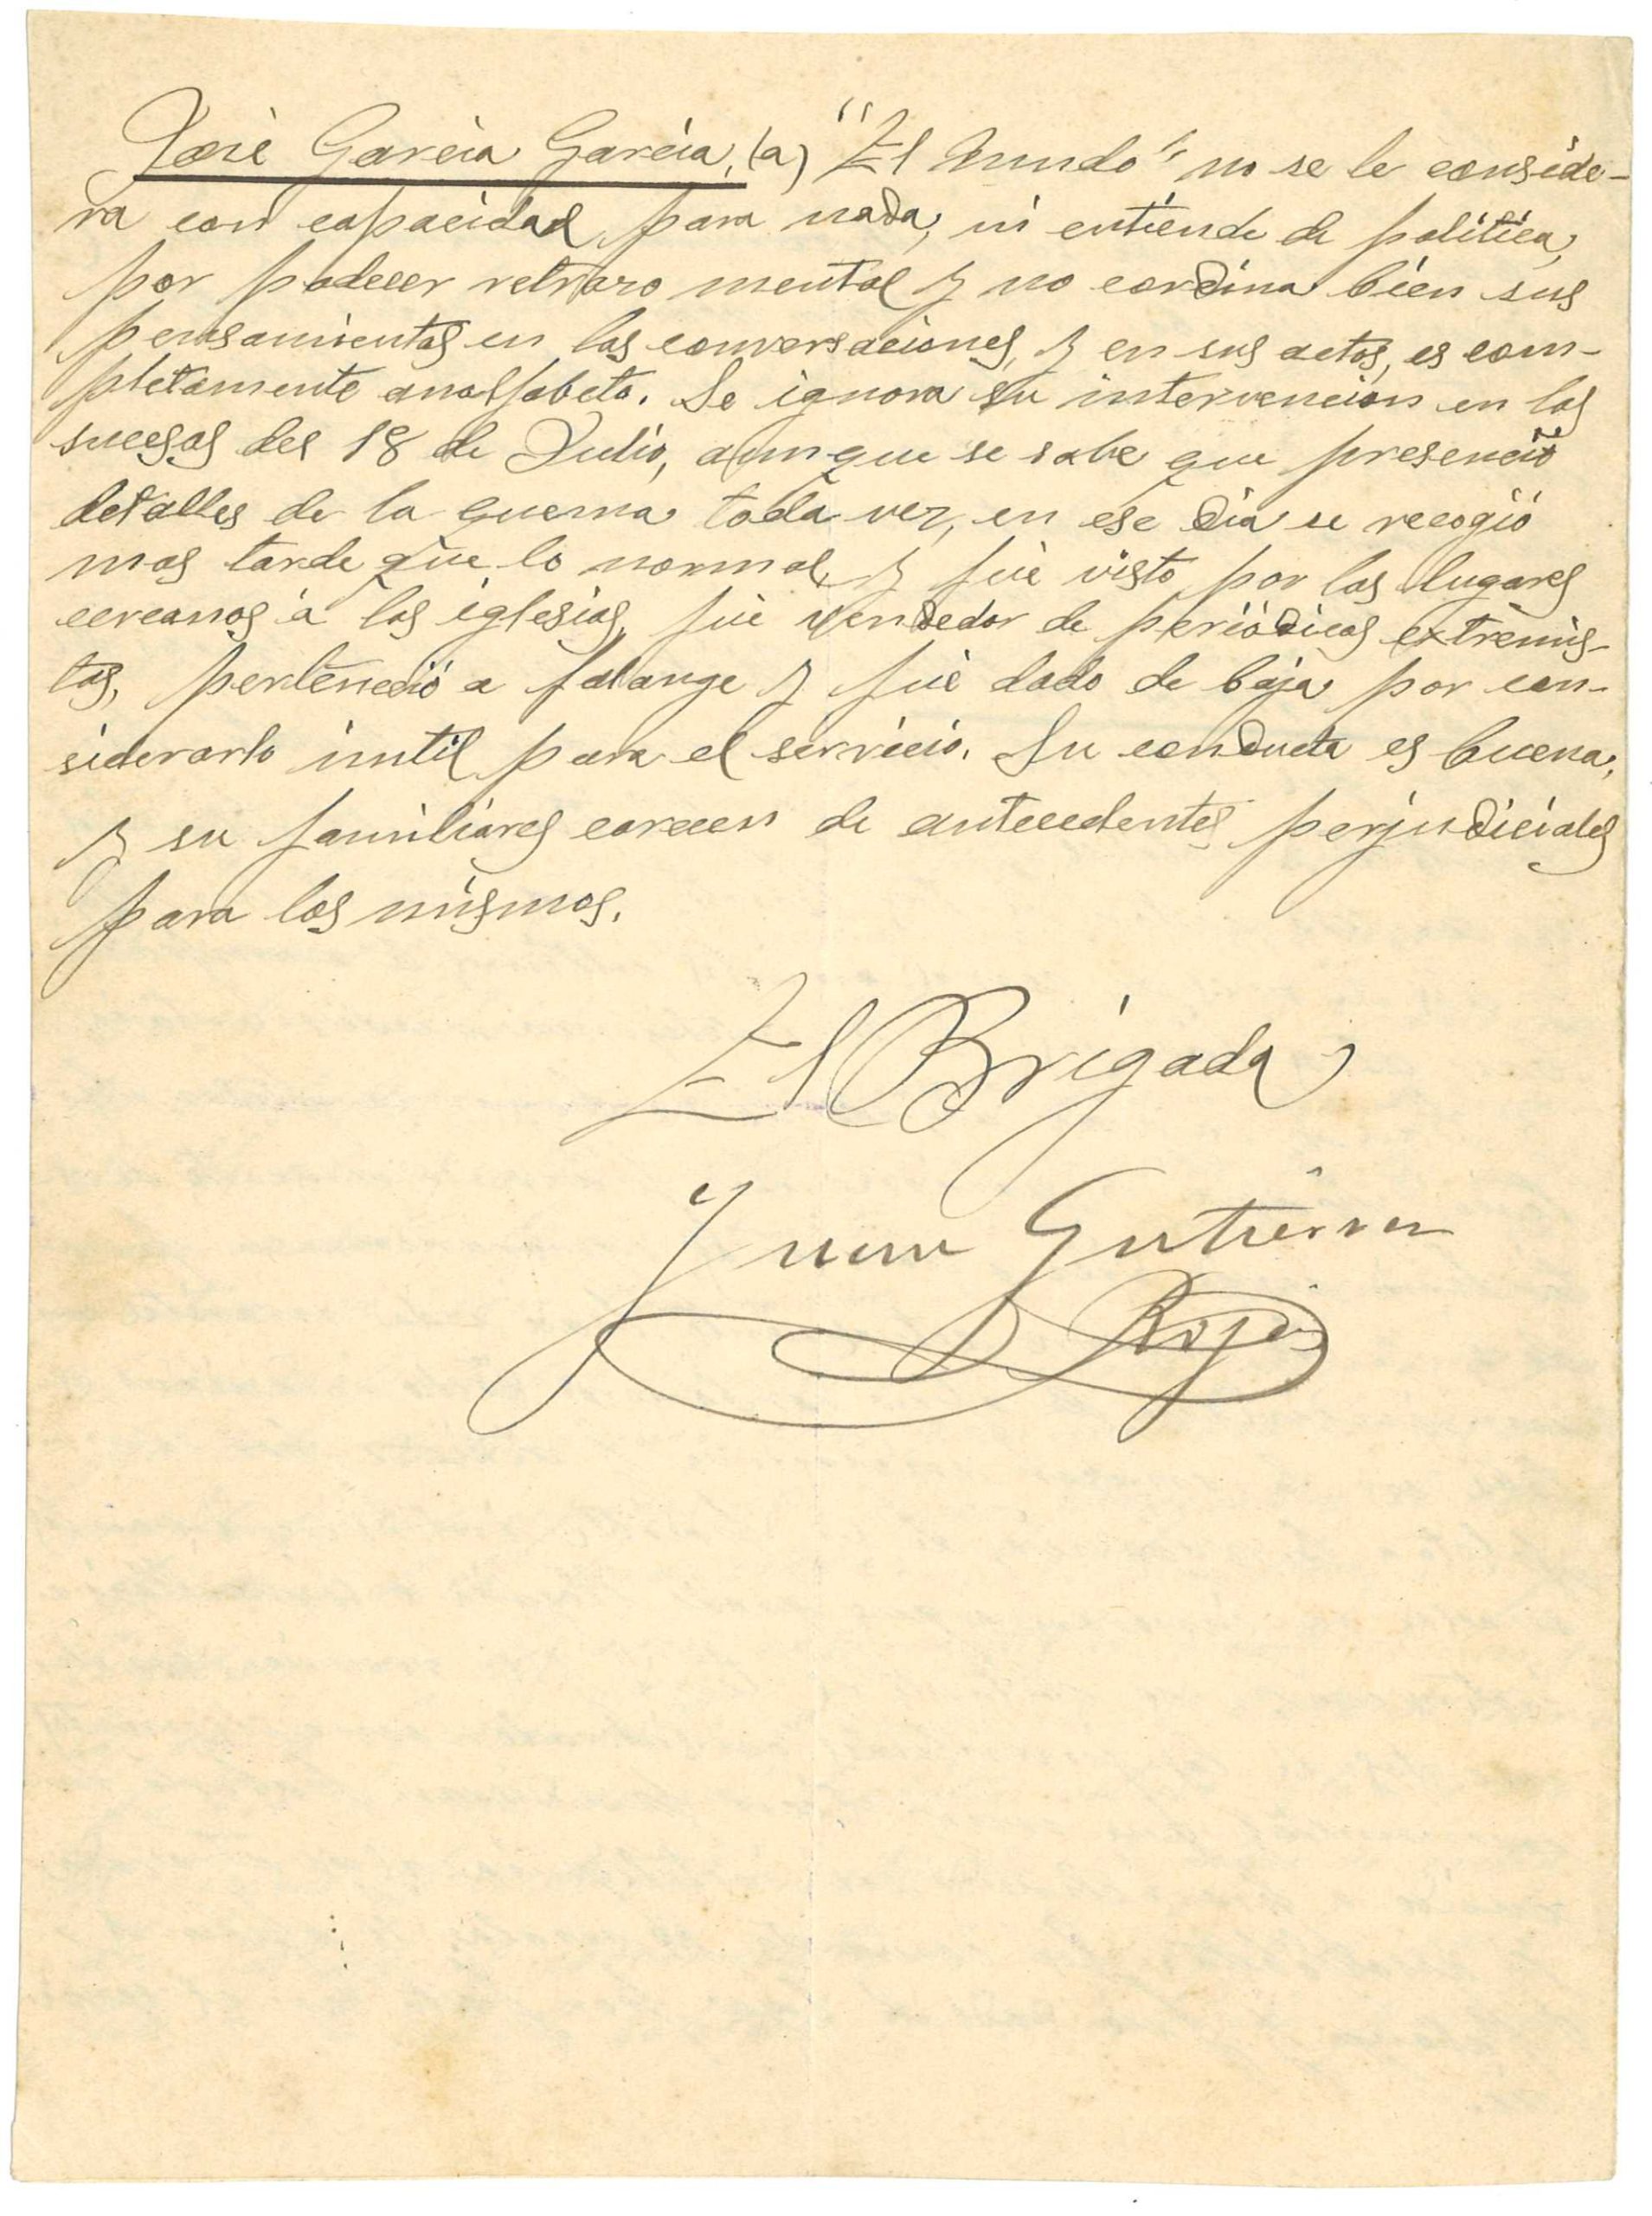 José García García, (a) "El Mundo" no se le conside-
ra con capacidad para nada, ni entiende de política,
por padecer retrazo mental y no cordina bien sus
pensamientos en las conversaciones, y en sus actos, es com-
pletamente analfabeto. Se ignora su intervencion en los
sucesos del 18 de Julio, aunque se sabe que presenció
detalles de la quema toda vez, en ese dia se recogió
mas tarde que lo normal, y fué visto por los lugares
cercanos á las iglesias, fué vendedor de periódicos extremis-
tas, perteneció a falange y fué dado de baja por con-
siderarlo inutil para el servicio. Su conducta es buena,
y su familiares carecen de antecedentes perjudiciales
para los mismos.
El Brigada
Juan Gutierrez
Rojas